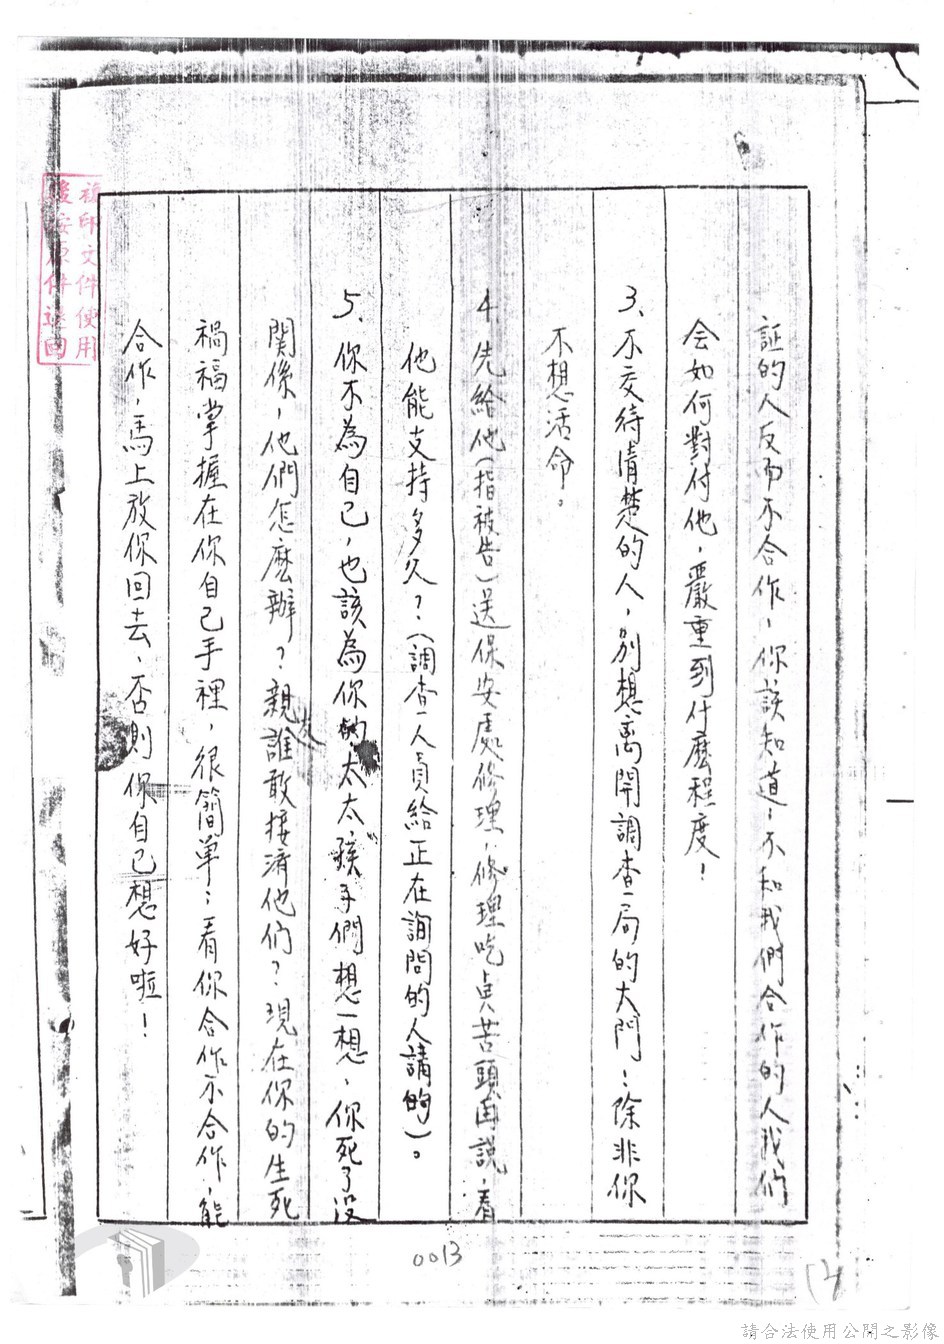 証的人反而不合作，你該知道：不和我們合作的人我们
会如何對付他，嚴重到什麼程度！
3、不交待清楚的人，別想离開調查局的大門：除非你
不想活命。
4、先給他（指被告）送保安處修理，修理吃点苦頭再說，看
他能支持多久？（調查人員給正在詢問的人講的）。
5、你不為自己，也該為你的太太孩子們想一想，你死了没
関係，他們怎麼辦？親友誰敢接濟他们？現在你的生死
禍福掌握在你自己手裡，很簡单：看你合作不合作，能
合作，馬上放你回去，否則你自己想好啦！
複印文件使用
後安原件退回
0013
請合法使用公開之影像